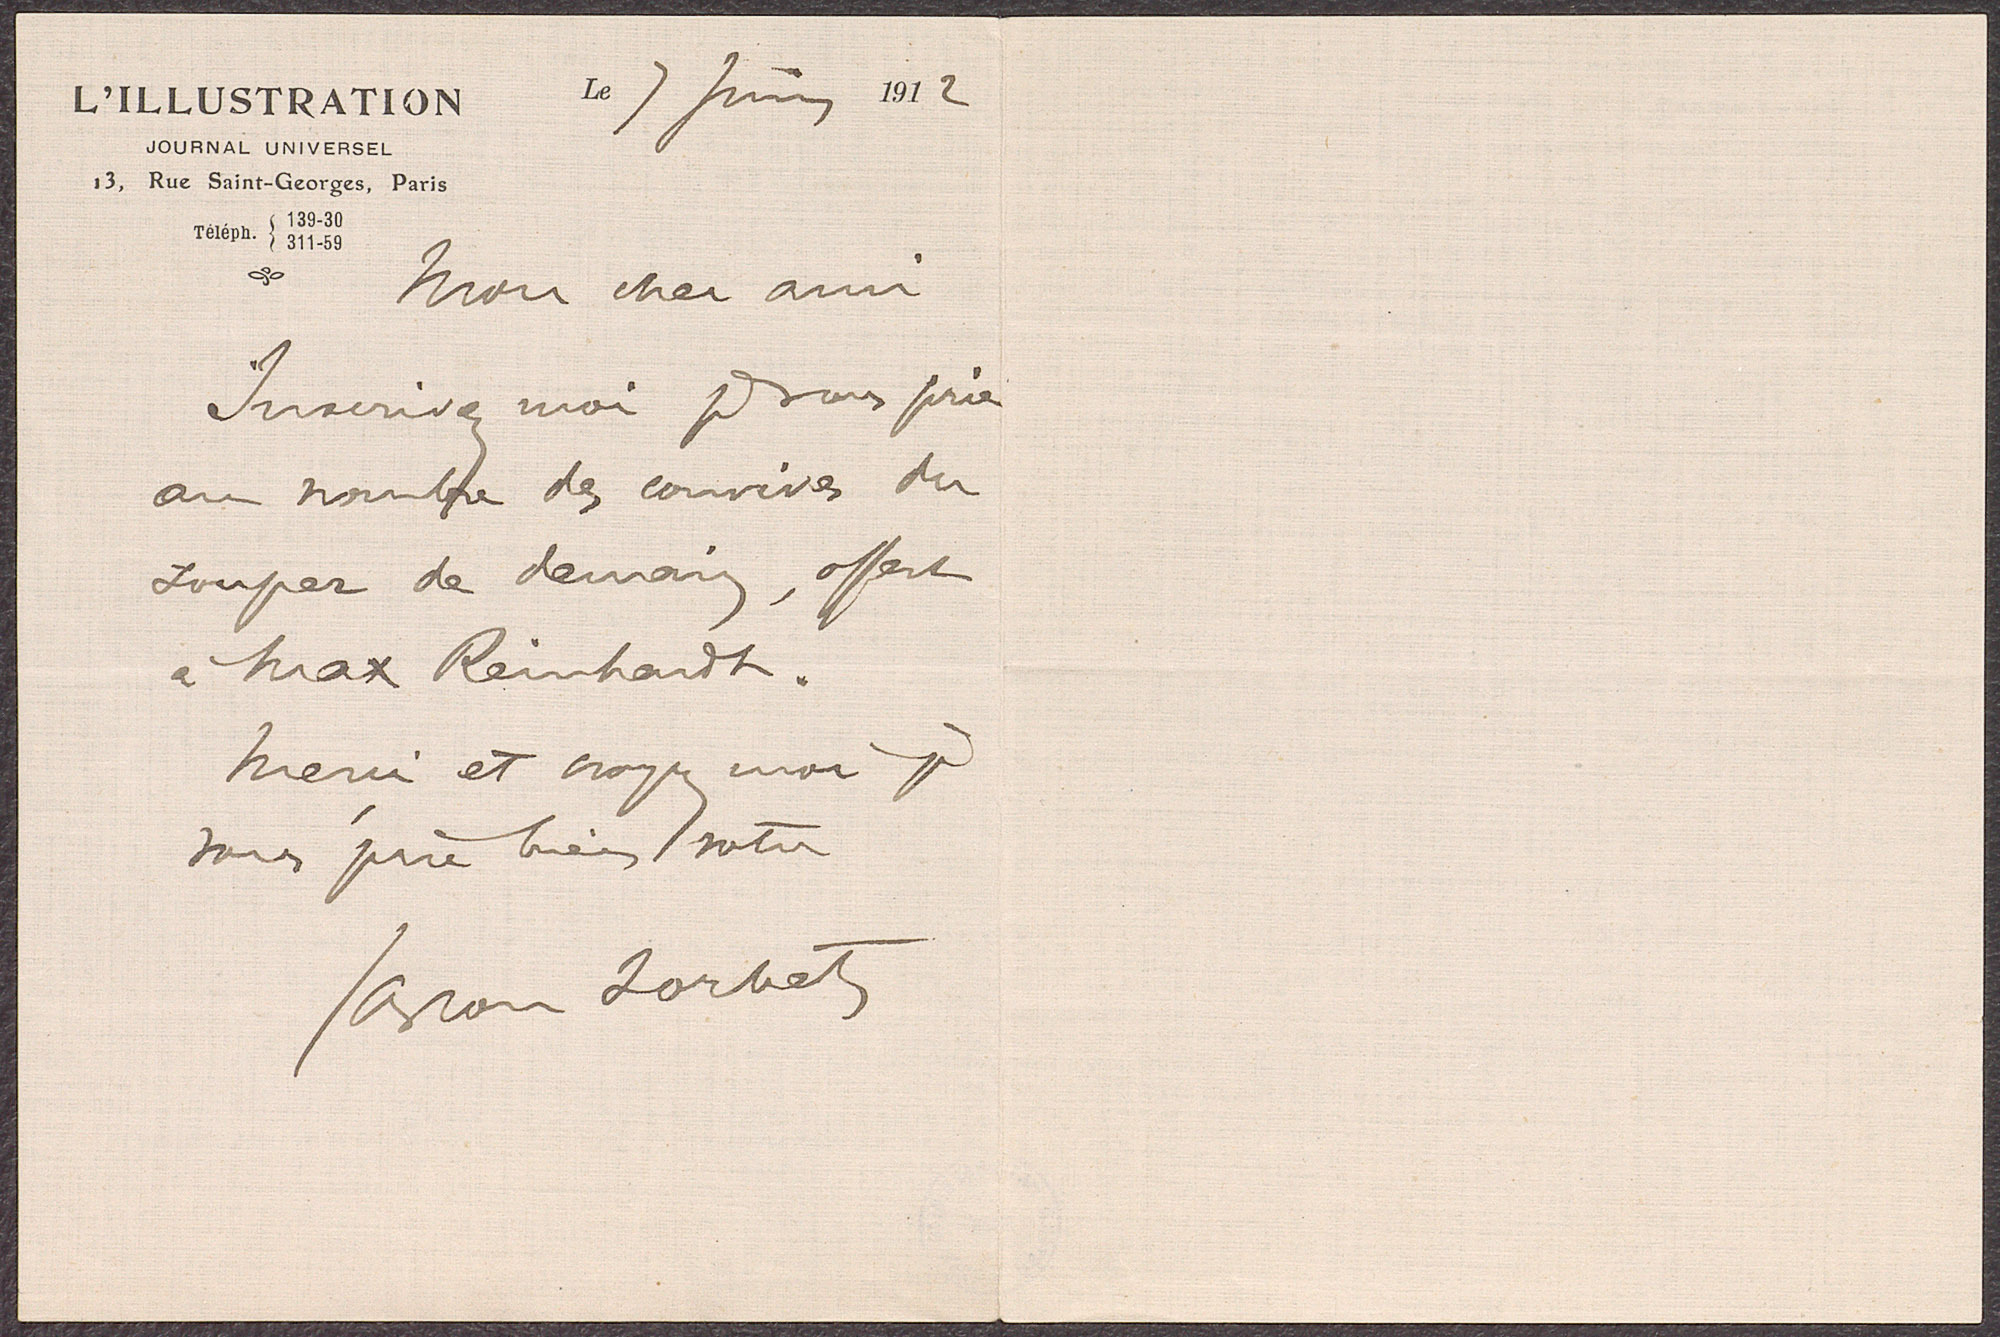 L'ILLUSTRATION
JOURNAL UNIVERSEL
13, Rue Saint-Georges, Paris
Téléph. { 139-30
311-59
Le 7 Juin 1912
Mon cher ami
Inscrivez moi je vous prie
au nombre des convives du
souper de demain, offert
à Max Reinhardt.
Merci et croyez moi je
vous prie bien votre
Gaston Sorbets